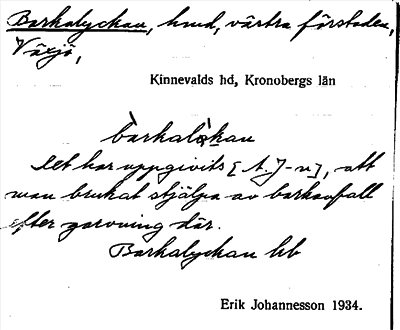 Barkalyckan, hmd, västra förstaden,
Växjö,
Kinnevalds hd, Kronobergs län
bàrkalỳkan
Det har uppgivits [A.J-n], att
man brukat stjälpa av barkavfall
efter garvning där.
Barkalyckan hb
Erik Johannesson 1934.